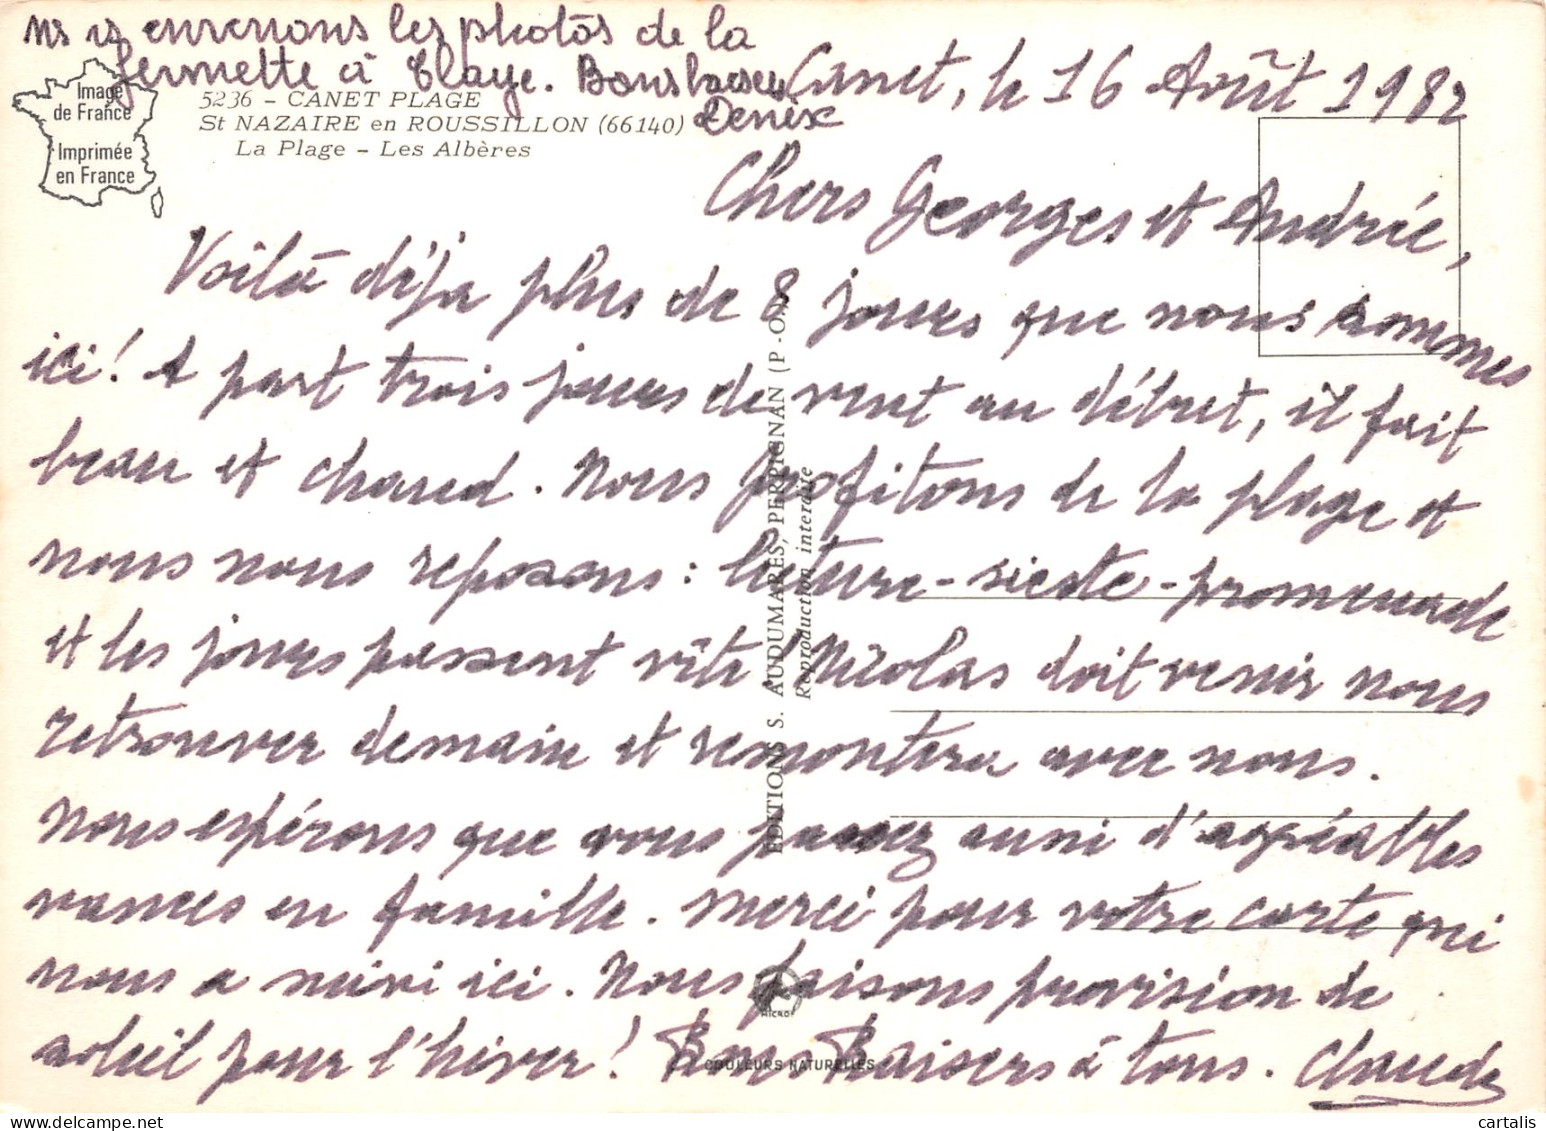 ns vs enverrons les photos de la
fermette à Blaye. Bons baisers
Denix
Image
de France
Imprimée
en France
5236 - CANET PLAGE
St NAZAIRE en ROUSSILLON (66140)
La Plage - Les Albères
Canet, le 16 Août 1982
Chers Georges et Andrée,
Voilà déjà plus de 8 jours que nous sommes
ici ! A part trois jours de vent au début, il fait
beau et chaud. Nous profitons de la plage et
nous nous reposons : lecture - sieste - promenade
et les jours passent vite ! Nicolas doit venir nous
retrouver demain et remontera avec nous.
Nous espérons que vous passez aussi d'agréables
vances en famille. Merci pour votre carte qui
nous a suivi ici. Nous faisons provision de
soleil pour l'hiver ! Bons Baisers à tous. Claude
EDITIONS S. AUDUMARES, PERPIGNAN (P.-O.)
Reproduction interdite
COULEURS NATURELLES
cartalis